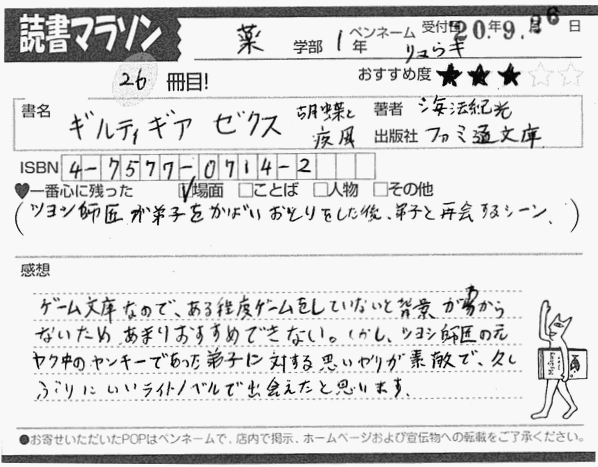 読書マラソン
薬 学部 1 年 ペンネーム りゅうキ 受付日 20年9.月26日
26 冊目!
おすすめ度 ★★★☆☆
書名 ギルティギア ゼクス 胡蝶と疾風
著者 海法紀光
出版社 ファミ通文庫
ISBN 4-7577-0714-2
♥一番心に残った ☑場面 □ことば □人物 □その他
(ツヨシ師匠が弟子をかばいおとりをした後、弟子と再会するシーン。)
感想
ゲーム文庫なので、ある程度ゲームをしていないと背景が分から
ないため あまりおすすめできない。しかし、ツヨシ師匠の元
ヤク中のヤンキーであった弟子に対する思いやりが素敵で、久し
ぶりにいいライトノベルで出会えたと思います。
●お寄せいただいたPOPはペンネームで、店内で掲示、ホームページおよび宣伝物への転載をご了承ください。